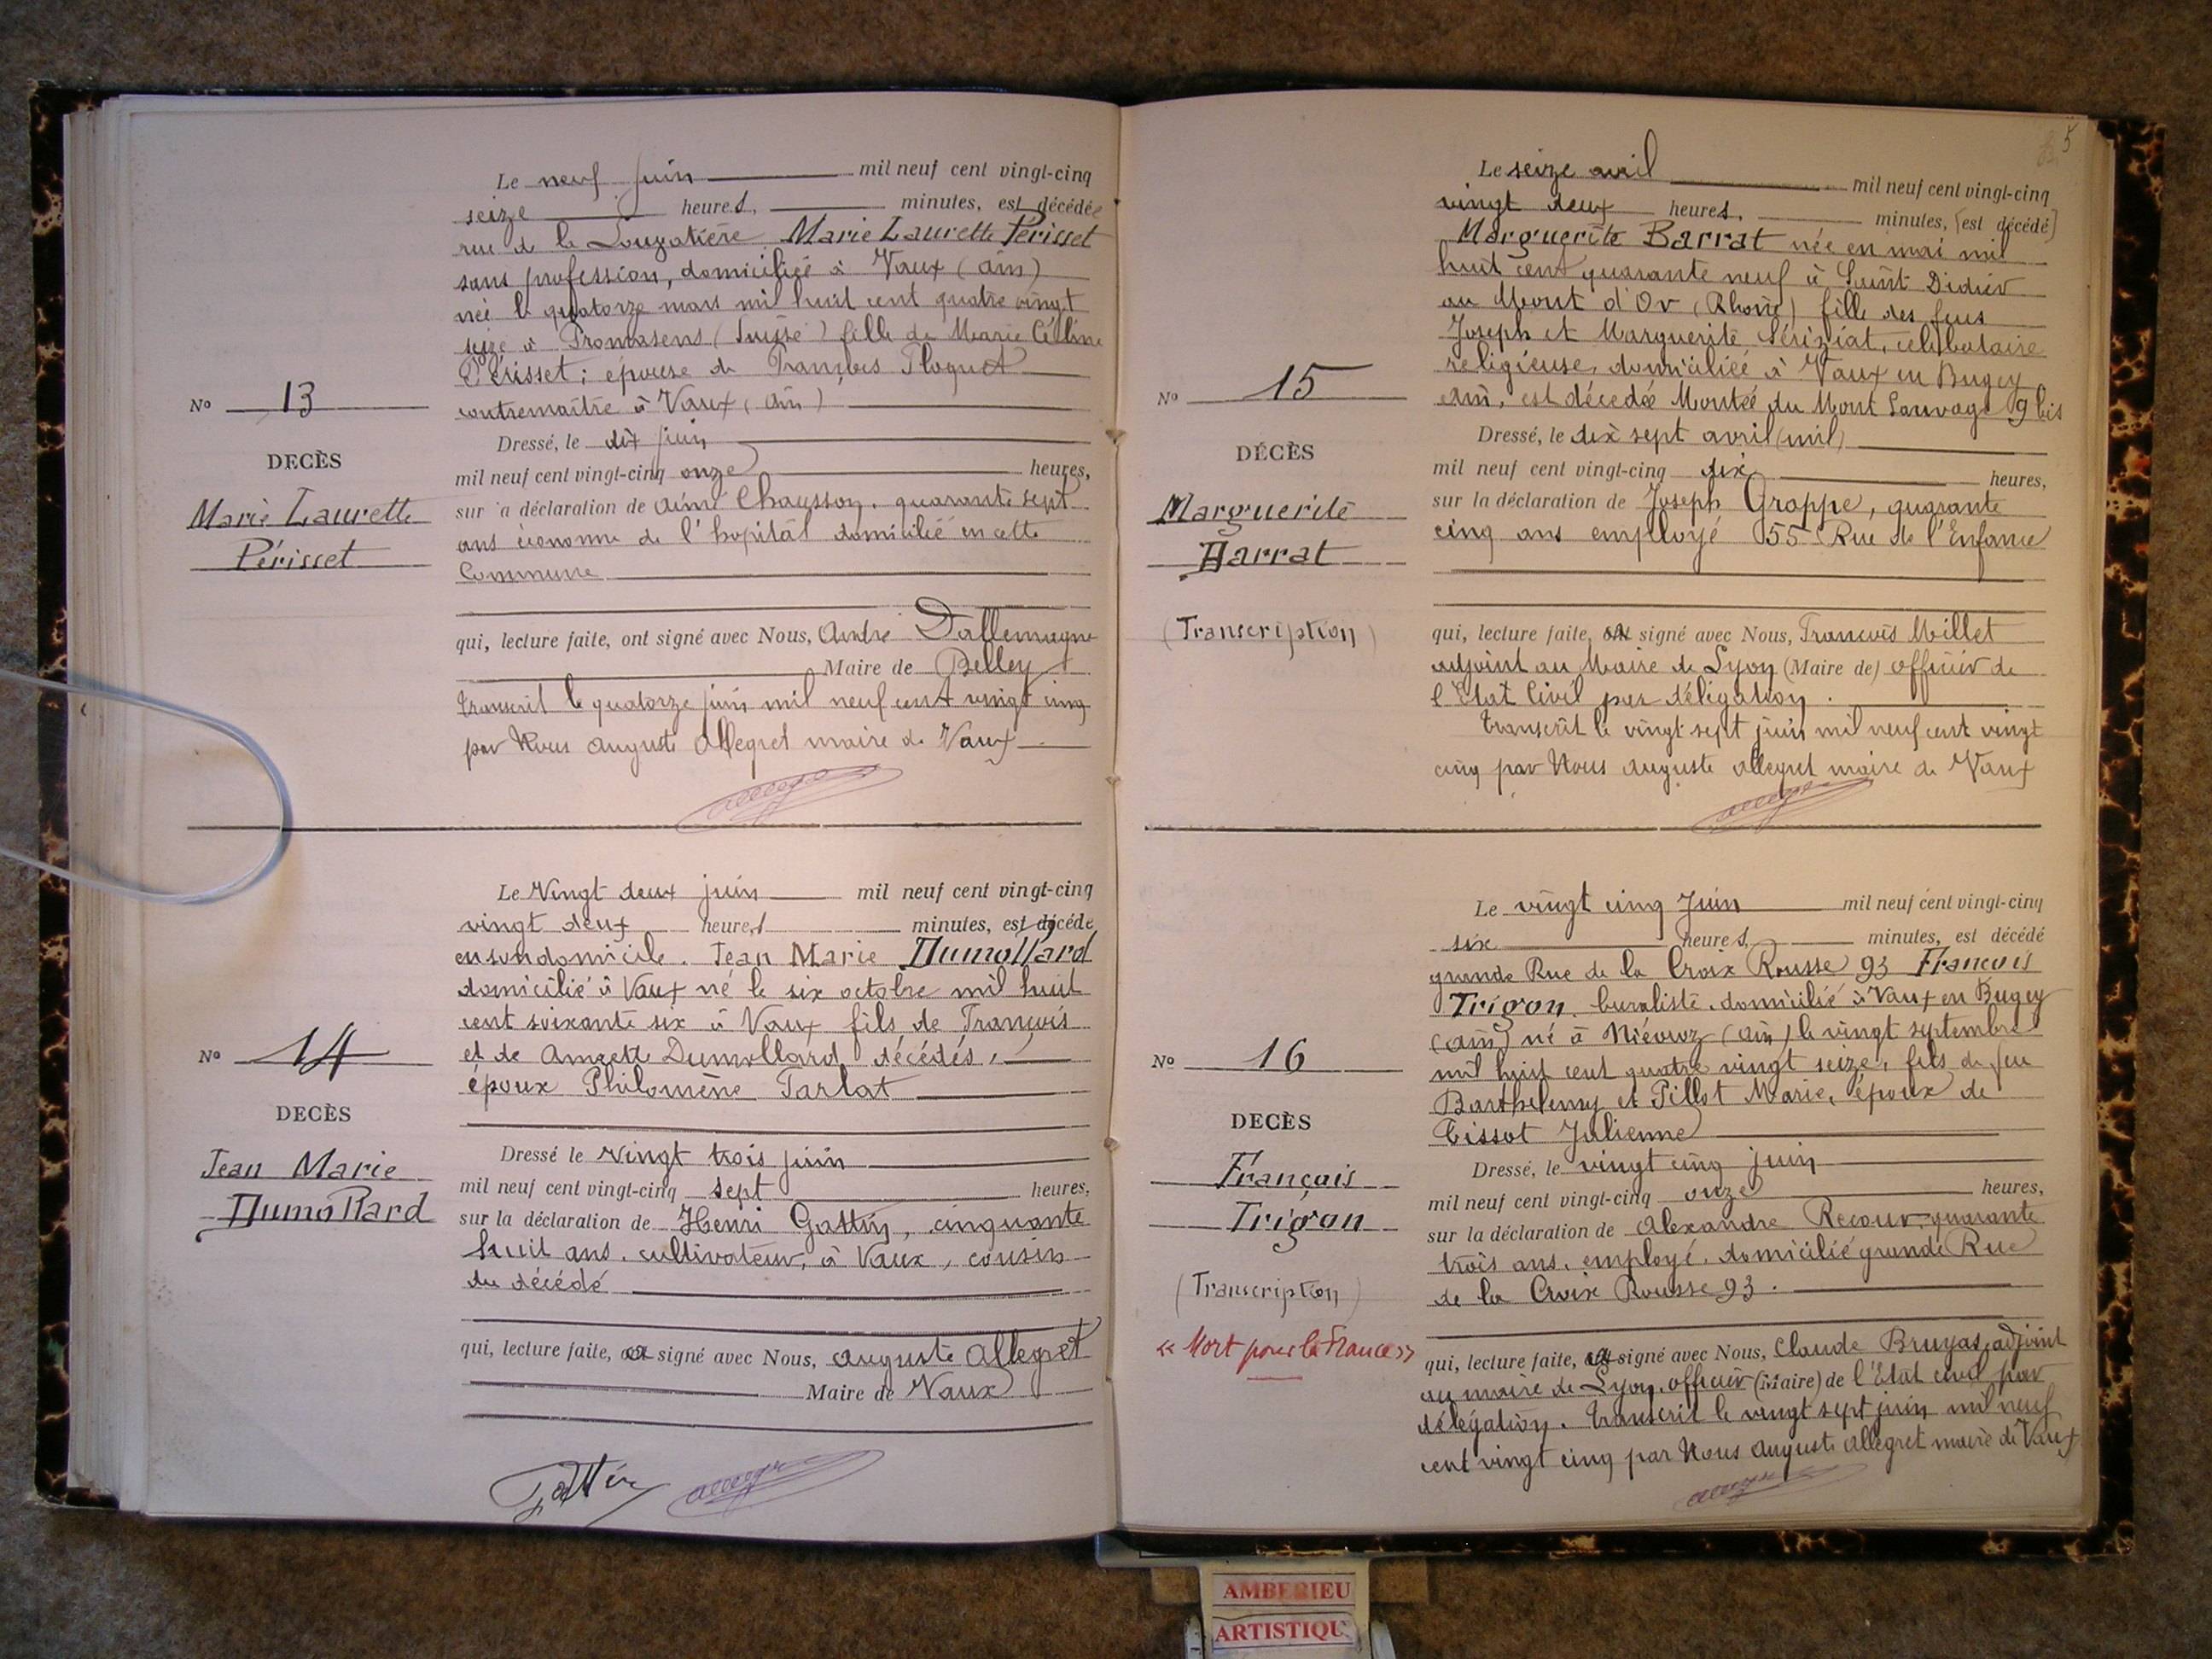 Le neuf juin mil neuf cent vingt-cinq
seize heures, minutes, est décédée
rue de la Louzatière Marie Laurette Périsset
sans profession, domiciliée à Vaux (Ain)
née le quatorze mars mil huit cent quatre vingt
seize à Promasens (Suisse) fille de Marie Céline
Périsset; épouse de François Floquet
contremaître à Vaux (Ain)
No 13
DECÈS
Marie Laurette
Périsset
Dressé, le dix juin
mil neuf cent vingt-cinq onze heures,
sur a déclaration de Aimé Chaysson, quarante sept
ans économe de l'hopital domicilié en cette
Commune
qui, lecture faite, ont signé avec Nous, André Dallemagne
Maire de Belley
transcrit le quatorze juin mil neuf cent vingt cinq
par Nous Auguste Allegret maire de Vaux
Le Vingt deux juin mil neuf cent vingt-cinq
vingt deux heures minutes, est décédé
en son domicile. Jean Marie Dumollard
domicilié à Vaux né le six octobre mil huit
cent soixante six à Vaux fils de François
et de Anzette Dumollard décédés,
époux Philomène Tarlat
No 14
DECÈS
Jean Marie
Dumollard
Dressé le Vingt trois juin
mil neuf cent vingt-cinq sept heures,
sur la déclaration de Henri Gattin, cinquante
huit ans, cultivateur, à Vaux, cousin
du décédé
qui, lecture faite, signé avec Nous, Auguste Allegret
Maire de Vaux
Gattin
5
Le seize avril mil neuf cent vingt-cinq
vingt deux heures, minutes, [est décédé]
Marguerite Barrat née en mai mil
huit cent quarante neuf à Saint Didier
au Mont d'Or (Rhône) fille des feus
Joseph et Marguerite Sériziat, célibataire
religieuse, domiciliée à Vaux en Bugey
Ain, est décédée Montée du Mont Sauvage 9 bis
No 15
DÉCÈS
Marguerite
Barrat
(Transcription)
Dressé, le dix sept avril (mil)
mil neuf cent vingt-cinq dix heures,
sur la déclaration de Joseph Grappe, quarante
cinq ans employé 55 Rue de l'Enfance
qui, lecture faite, signé avec Nous, François Millet
adjoint au Maire de Lyon (Maire de) officier de
l'Etat Civil par délégation.
transcrit le vingt sept juin mil neuf cent vingt
cinq par Nous Auguste Allegret maire de Vaux
Le vingt cinq Juin mil neuf cent vingt-cinq
six heures, minutes, est décédé
grande Rue de la Croix Rousse 93 François
Trigon, buraliste, domicilié à Vaux en Bugey
(Ain) né à Niévroz (Ain) le vingt septembre
mil huit cent quatre vingt seize, fils de feu
Barthelemy et Pillot Marie, époux de
Tissot Julienne
No 16
DECÈS
Français
Trigon
(Transcription)
« Mort pour la France »
Dressé, le vingt cinq juin
mil neuf cent vingt-cinq onze heures,
sur la déclaration de Alexandre Recour, quarante
trois ans, employé, domicilié grande Rue
de la Croix Rousse 93.
qui, lecture faite, signé avec Nous, Claude Bruyas, adjoint
au maire de Lyon, officier (Maire) de l'Etat civil par
délégation. transcrit le vingt sept juin mil neuf
cent vingt cinq par Nous Auguste Allegret maire de Vaux
AMBERIEU
ARTISTIQU